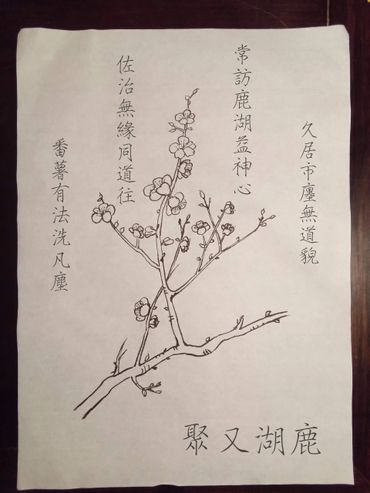 久居市廛無道貌
常訪鹿湖益神心
佐治無緣同道往
番薯有法洗凡塵
鹿湖又聚